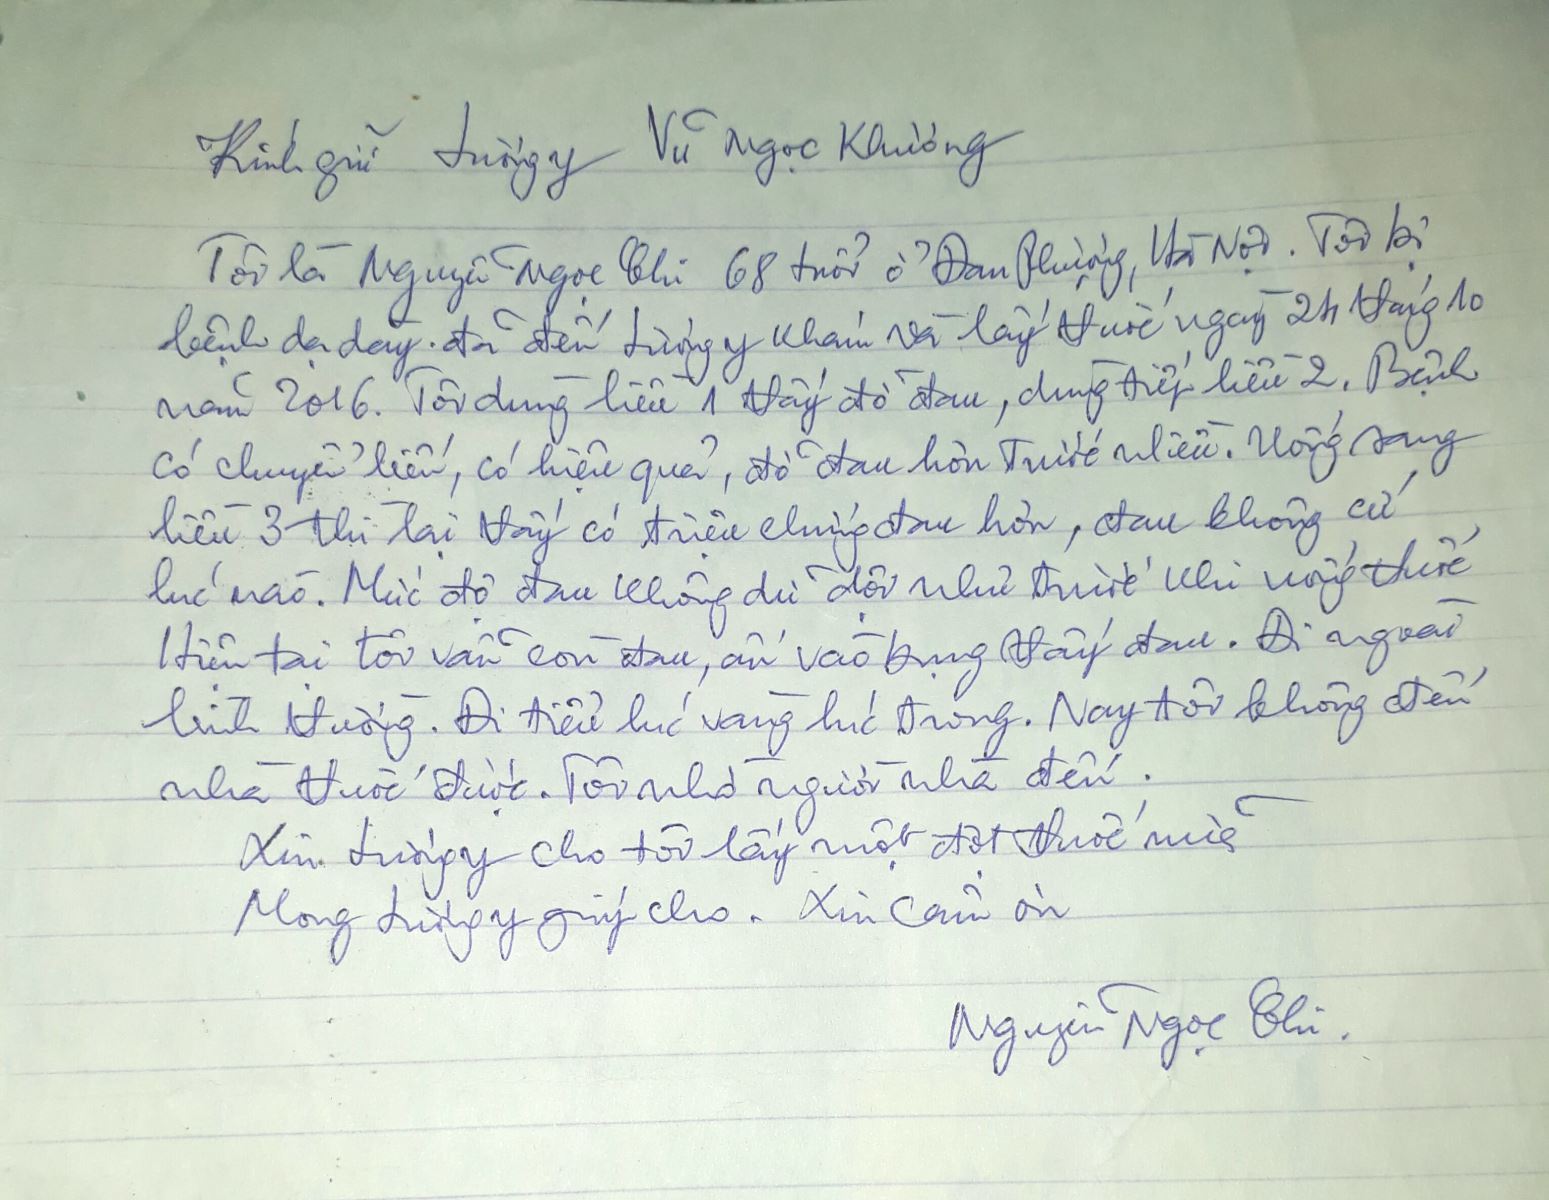 Kính gửi Lương y Vũ Ngọc Khương
Tôi là Nguyễn Ngọc Chi 68 tuổi ở Đan Phượng, Hà Nội. Tôi bị
bệnh dạ dày. đã đến Lương y khám và lấy thuốc ngày 24 tháng 10
năm 2016. Tôi dùng liều 1 thấy đỡ đau, dùng tiếp liều 2. Bệnh
có chuyển biến, có hiệu quả, đỡ đau hơn trước nhiều. Uống sang
liều 3 thì lại thấy có triệu chứng đau hơn, đau không cứ
lúc nào. Mức độ đau không dữ dội như trước khi uống thuốc
Hiện tại tôi vẫn còn đau, ấn vào bụng thấy đau. Đi ngoài
bình thường. Đi tiểu lúc vàng lúc trong. Nay tôi không đến
nhà thuốc được. Tôi nhờ người nhà đến.
Xin Lương y cho tôi lấy một đợt thuốc nữa
Mong Lương y giúp cho. Xin cảm ơn
Nguyễn Ngọc Chi.